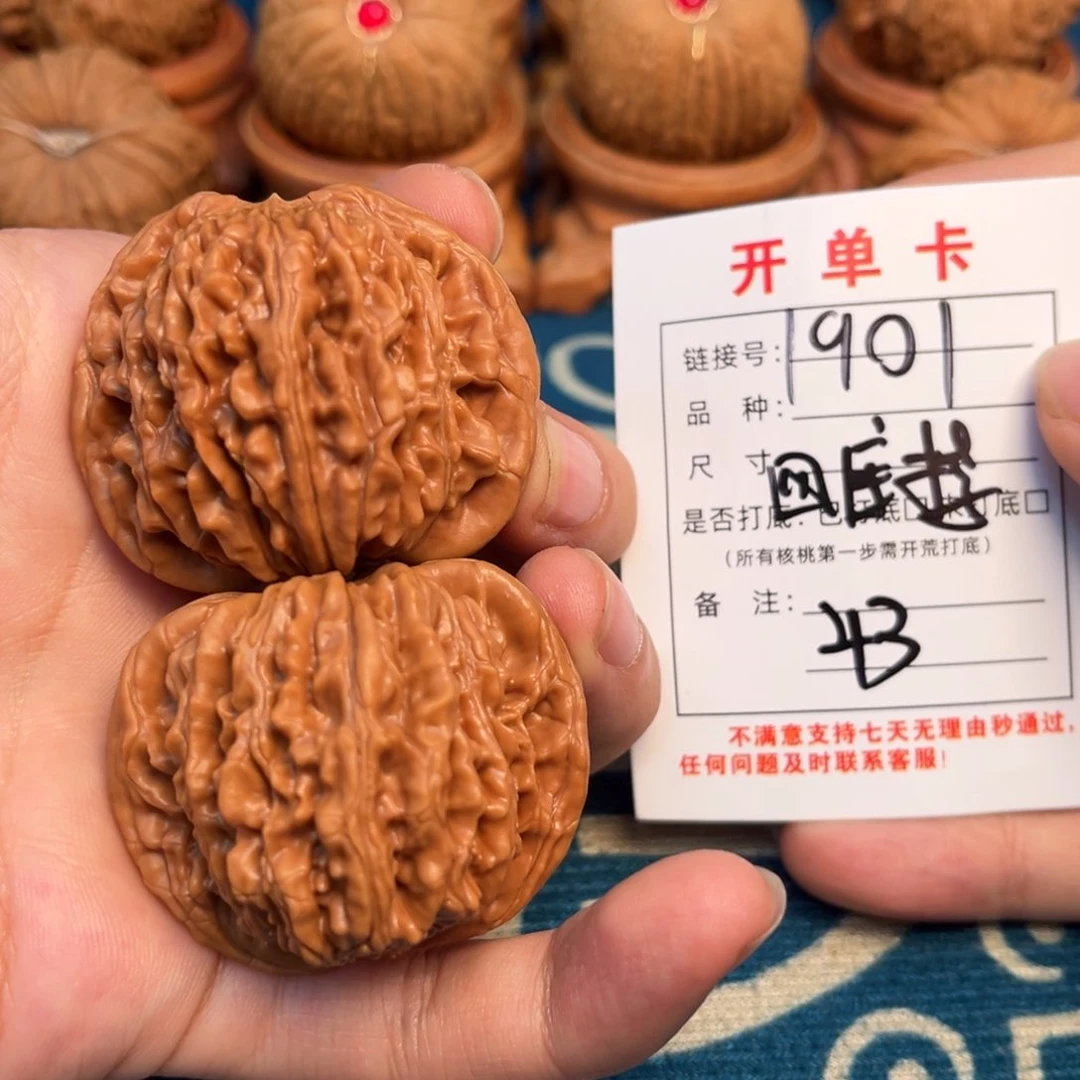 开单卡
链接号: 1901
品 种:
尺 寸
是否打底: 已打底□ 未打底□
(所有核桃第一步需开荒打底)
备 注:
43
不满意支持七天无理由秒通过,
任何问题及时联系客服!